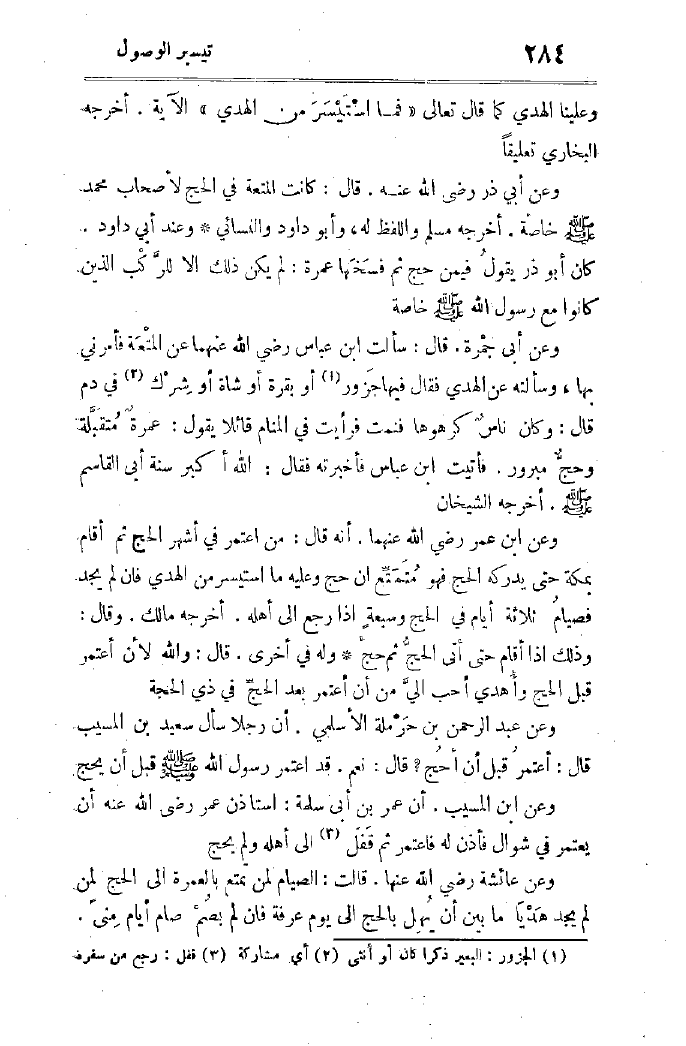 ٢٨٤ تيسير الوصول
وعلينا الهدي كما قال تعالى « فمـا اسْتَيْسَرَ من الهدي » الآية . أخرجه
البخاري تعليقاً
وعن أبي ذر رضى الله عنـه . قال : كانت المتعة في الحج لأصحاب محمد
ﷺ خاصة . أخرجه مسلم واللفظ له، وأبو داود والنسائي * وعند أبي داود .
كان أبو ذر يقولُ فيمن حج ثم فسَخَها عمرة : لم يكن ذلك الا للرَّكْب الذين
كانوا مع رسول الله ﷺ خاصة
وعن أبى جَمْرة . قال : سألت ابن عباس رضي الله عنهما عن المتْعَة فأمرني
بها ، وسألته عن الهدي فقال فيها جَزور (١) أو بقرة أو شاة أو شِرْك (٢) في دم
قال : وكان ناسٌ كرهوها فنمت فرأيت في المنام قائلا يقول : عمرةٌ مُتقبَّلة
وحجٌّ مبرور . فأتيت ابن عباس فأخبرته فقال : الله أكبر سنة أبي القاسم
ﷺ . أخرجه الشيخان
وعن ابن عمر رضي الله عنهما . أنه قال : من اعتمر في أشهر الحج ثم أقام
بمكة حتى يدركه الحج فهو مُتَمَتِّع ان حج وعليه ما استيسر من الهدي فان لم يجد
فصيامُ ثلاثة أيام في الحج وسبعةٍ اذا رجع الى أهله . أخرجه مالك . وقال :
وذلك اذا أقام حتى أتى الحجُّ ثم حج * وله في أخرى . قال : والله لأن أعتمر
قبل الحج وأُهدي أحب اليَّ من أن أعتمر بعد الحجّ في ذي الحجة
وعن عبد الرحمن بن حَرْملة الأسلمي . أن رجلا سأل سعيد بن المسيب
قال : أعتمرُ قبل أن أحُج ؟ قال : نعم . قد اعتمر رسول الله ﷺ قبل أن يحج
وعن ابن المسيب . أن عمر بن أبى سلمة : استاذن عمر رضى الله عنه أن
يعتمر في شوال فأذن له فاعتمر ثم قَفَل (٣) الى أهله ولم يحج
وعن عائشة رضي الله عنها . قالت : الصيام لمن تمتع بالعمرة الى الحج لمن
لم يجد هَدْيًا ما بين أن يُهِل بالحج الى يوم عرفة فان لم يصُمْ صام أيام مِنىً .
(١) الجزور : البعير ذكرا كان أو أنثى (٢) أي مشاركة (٣) قفل : رجع من سفره